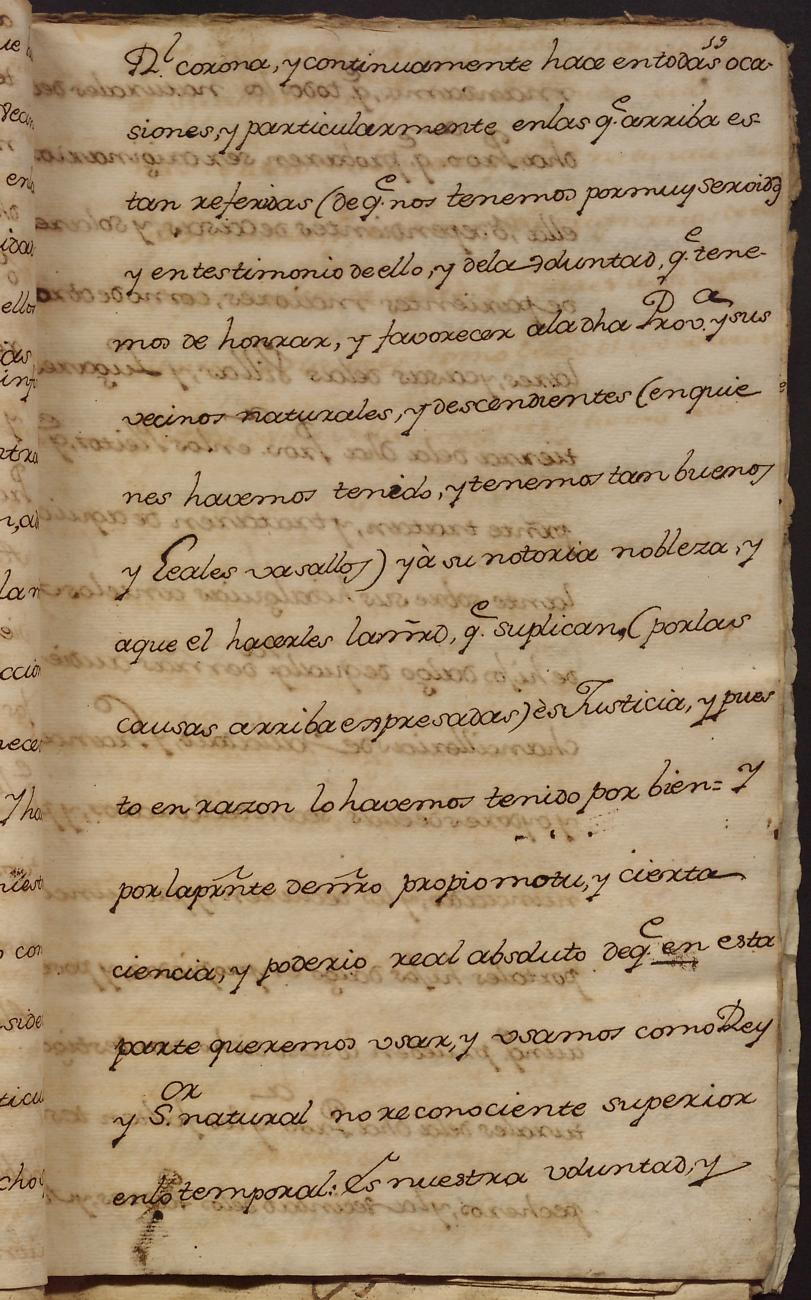 19
Rl. corona, y continuamente hace en todas oca-
siones, y particularmente en las q.e arriba es-
tan referidas (de q.e nos tenemos por muy servidos)
y en testimonio de ello, y de la voluntad, q.e tene-
mos de honrar, y favorecer a la dha Prov.a y sus
vecinos naturales, y descendientes (en quie-
nes havemos tenido, y tenemos tan buenos
y Leales vasallos) y à su notoria nobleza, y
a que el hacerles la mrd, q.e suplican, (por las
causas arriba expresadas) ès Justicia, y pues-
to en razon lo havemos tenido por bien= Y
por la prnte de nro propio motu, y cierta
ciencia, y poderio real absoluto de q.e en esta
parte queremos vsar, y vsamos como Rey
y S.or natural no reconociente superior
en lo temporal: Es nuestra voluntad, y